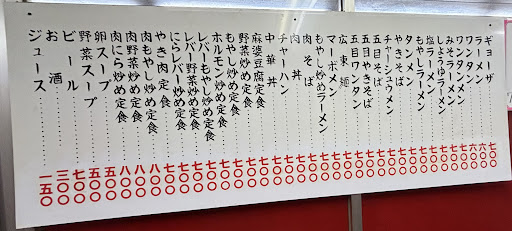 ギョーザ 七〇〇
ラーメン 六〇〇
ワンタン 六〇〇
ワンタンメン 七〇〇
みそラーメン 七〇〇
しょうゆラーメン 七〇〇
塩ラーメン 七〇〇
もやしラーメン 七〇〇
タンメン 七〇〇
やきそば 七〇〇
チャーシュウメン 七〇〇
五目そば 七〇〇
五目やきそば 七〇〇
五目ワンタン 七〇〇
広東麺 七〇〇
マーボメン 七〇〇
もやし炒めラーメン 七〇〇
肉そば 七〇〇
肉丼 七〇〇
チャーハン 七〇〇
中華丼 七〇〇
麻婆豆腐定食 七〇〇
野菜炒め定食 七〇〇
もやし炒め定食 七〇〇
ホルモン炒め定食 七〇〇
レバーもやし炒め定食 七〇〇
レバー野菜炒め定食 七〇〇
にらレバー炒め定食 七〇〇
やき肉定食 七〇〇
肉もやし炒め定食 八〇〇
肉野菜炒め定食 八〇〇
肉にら炒め定食 八〇〇
卵スープ 五〇〇
野菜スープ 五〇〇
ビール 七〇〇
お酒 三〇〇
ジュース 一五〇